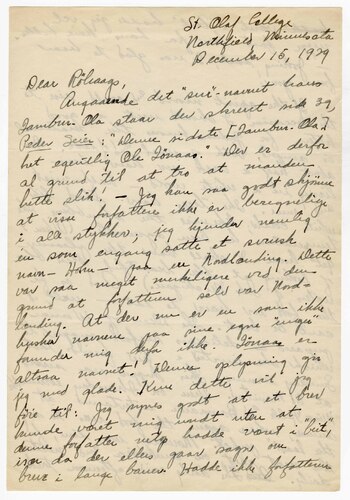 St. Olaf College
Northfield, Minnesota
December 15, 1929
Dear Rölvaag,
Angaaende det "sure" navnet hans
Tambur-Ola staar der skrevet side 39
Peder Seier: "Denne sidste [Tambur-Ola]
het egentlig Ole Jönaas." Der er derfor
al grund til at tro at manden
hette slik! – Jeg kan saa godt skjönne
at visse forfattere ikke er beregnelige
i alle stykker; jeg kjender nemlig
en som engang satte et svensk
navn – Hohn – paa en Nordlending. Dette
var saa meget merkeligere ved den
grund at forfatteren selv var Nord-
lending. At der nu er en som ikke
husker navnene paa sine egne "unger"
forundrer mig derfor ikke. Jönaas er
altsaa navnet! Denne oplysning gir
jeg med glæde. Kun dette vil jeg
föie til: Jeg synes godt at et brev
kunde været mig undt uten at
denne forfatter netop hadde været i "beit",
især da der ellers gaar sagn om
brev i lange baner. Hadde ikke forfatteren